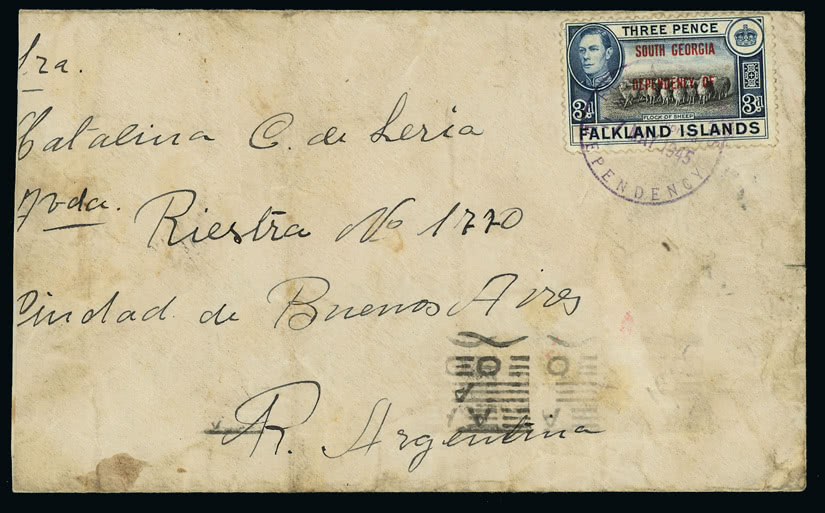 Sra.
Catalina C. de Leria
Avda. Riestra No 1770
Ciudad de Buenos Aires
R. Argentina
THREE PENCE
SOUTH GEORGIA
DEPENDENCY OF
3d 3d
FLOCK OF SHEEP
FALKLAND ISLANDS
1945
DEPENDENCY